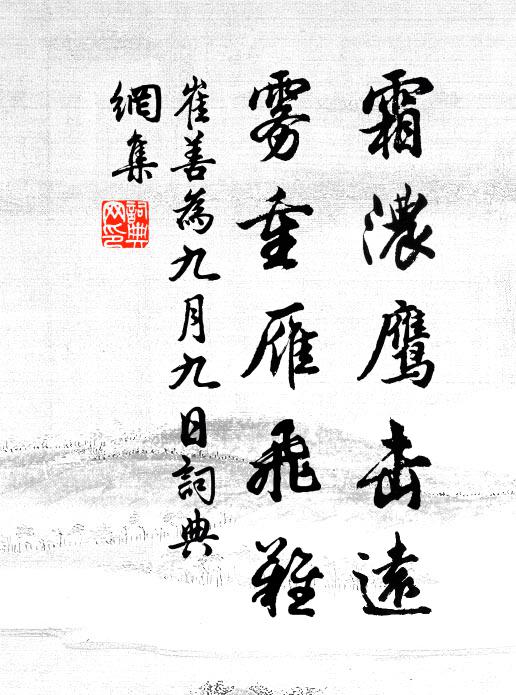 霜濃鹰击遠
雾重雁飛難
崔善為九月九日詞典
網集
詞典網印